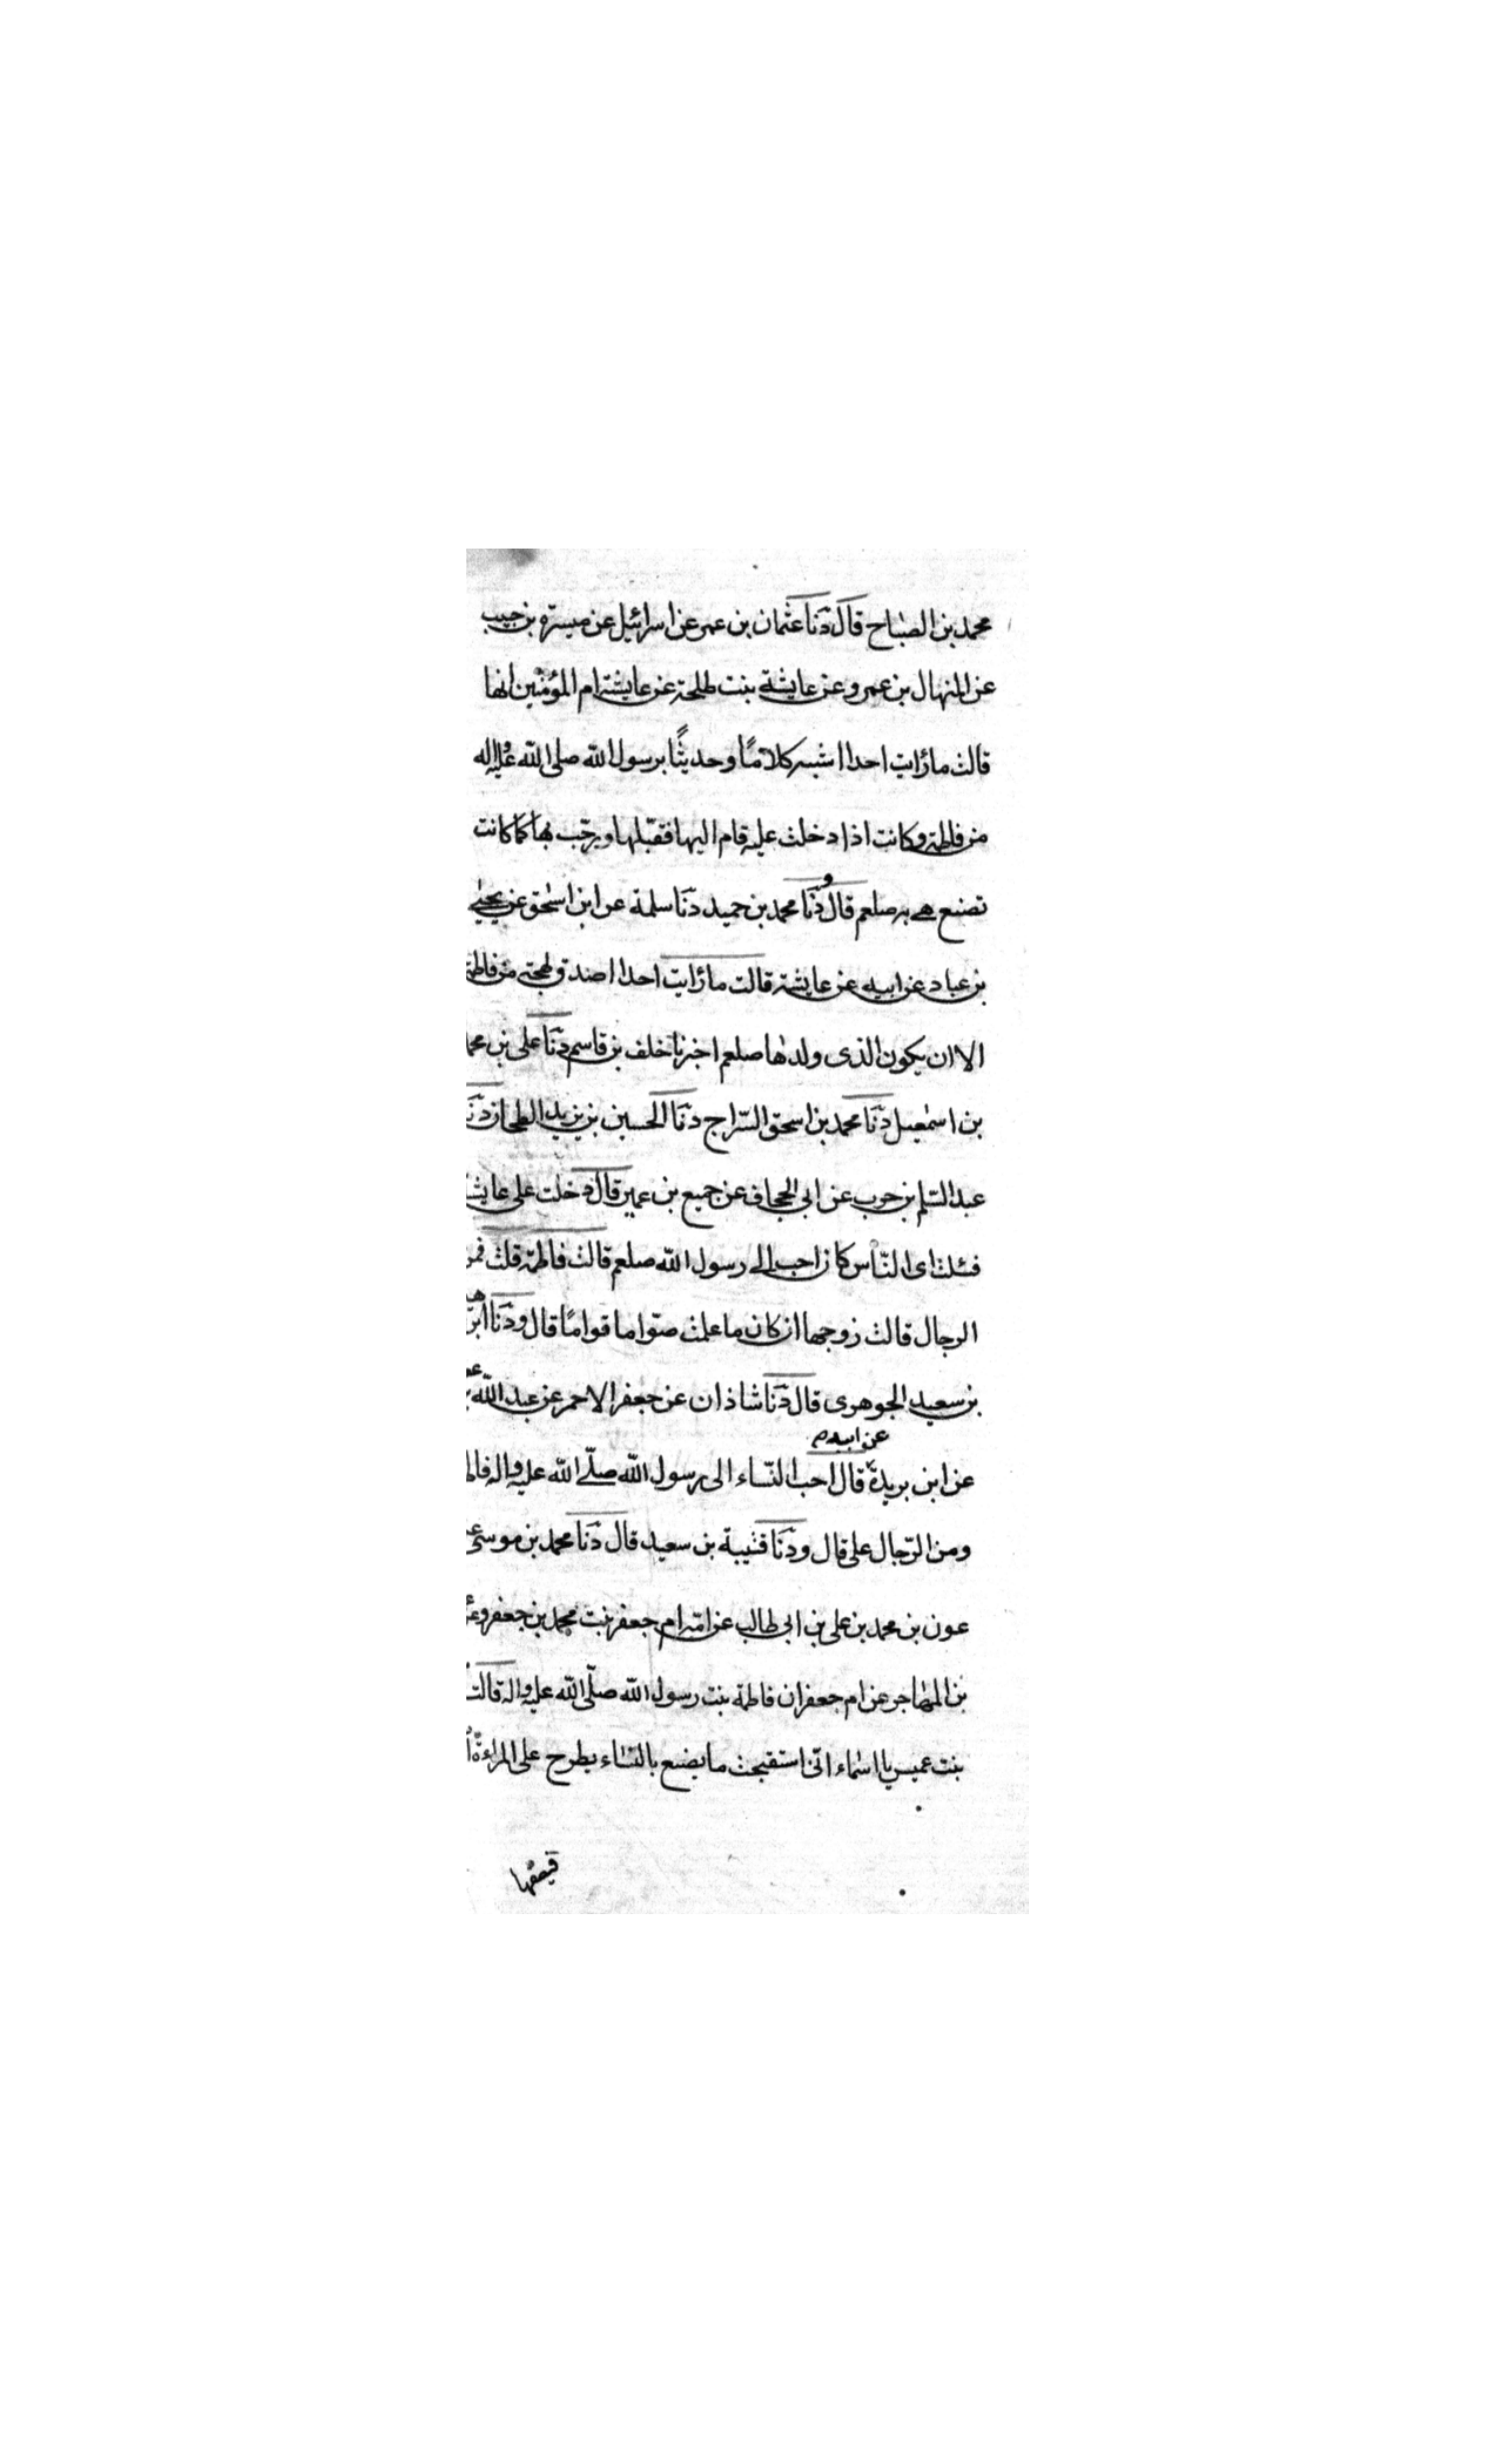 محمد بن الصباح قال دنا عثمان بن عمر عن اسرائيل عن ميسرة بن حبيب
عن المنهال بن عمرو عن عايشة بنت طلحة عن عايشة ام المؤمنين انها
قالت ما رايت احدا اشبه كلامًا وحديثًا برسول الله صلى الله عليه واله
من فاطمة وكانت اذا دخلت عليه قام اليها فقبّلها ويرحّب بها كما كانت
تصنع هي به صلعم قال ودنا محمد بن حميد دنا سلمة عن ابن اسحق عن يحيى
بن عباد عن ابيه عن عايشة قالت ما رايت احدا اصدق لهجة من فاطمة
الا ان يكون الذى ولدها صلعم اخبرنا خلف بن قاسم دنا على بن
بن اسمعيل دنا محمد بن اسحق السّراج دنا الحسين بن يزيد الطحان دنا
عبد السّلم بن حرب عن ابى الجحاف عن جميع بن عمير قال دخلت على
فسئلت اى النّاس كان احب الى رسول الله صلعم قالت فاطمة قلت فمن
الرجال قالت زوجها ان كان ما علمت صوّاما قوامًا قال ودنا
بن سعيد الجوهرى قال دنا شاذان عن جعفر الاحمر عن عبد الله
عن ابيه م
عن ابن بريدة قال احب النّساء الى رسول الله صلّى الله عليه واله
ومن الرّجال على قال ودنا قتيبة بن سعيد قال دنا محمد بن موسى
عون بن محمد بن على بن ابى طالب عن امّه ام جعفر بنت محمد بن جعفر
بن المهاجر عن ام جعفر ان فاطمة بنت رسول الله صلّى الله عليه واله قالت
بنت عميس يا اسماء انّى استقبحت ما يصنع بالنّساء يطرح على المراءة